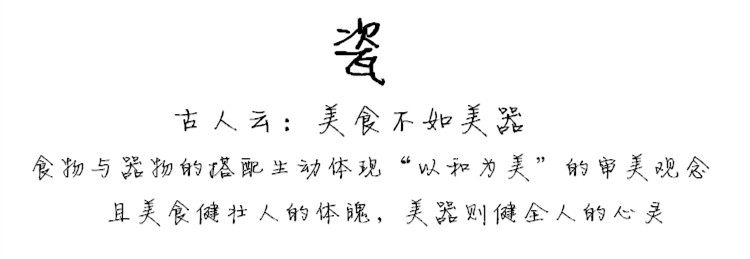 瓷
古人云：美食不如美器
食物与器物的搭配生动体现“以和为美”的审美观念
且美食健壮人的体魄，美器则健全人的心灵